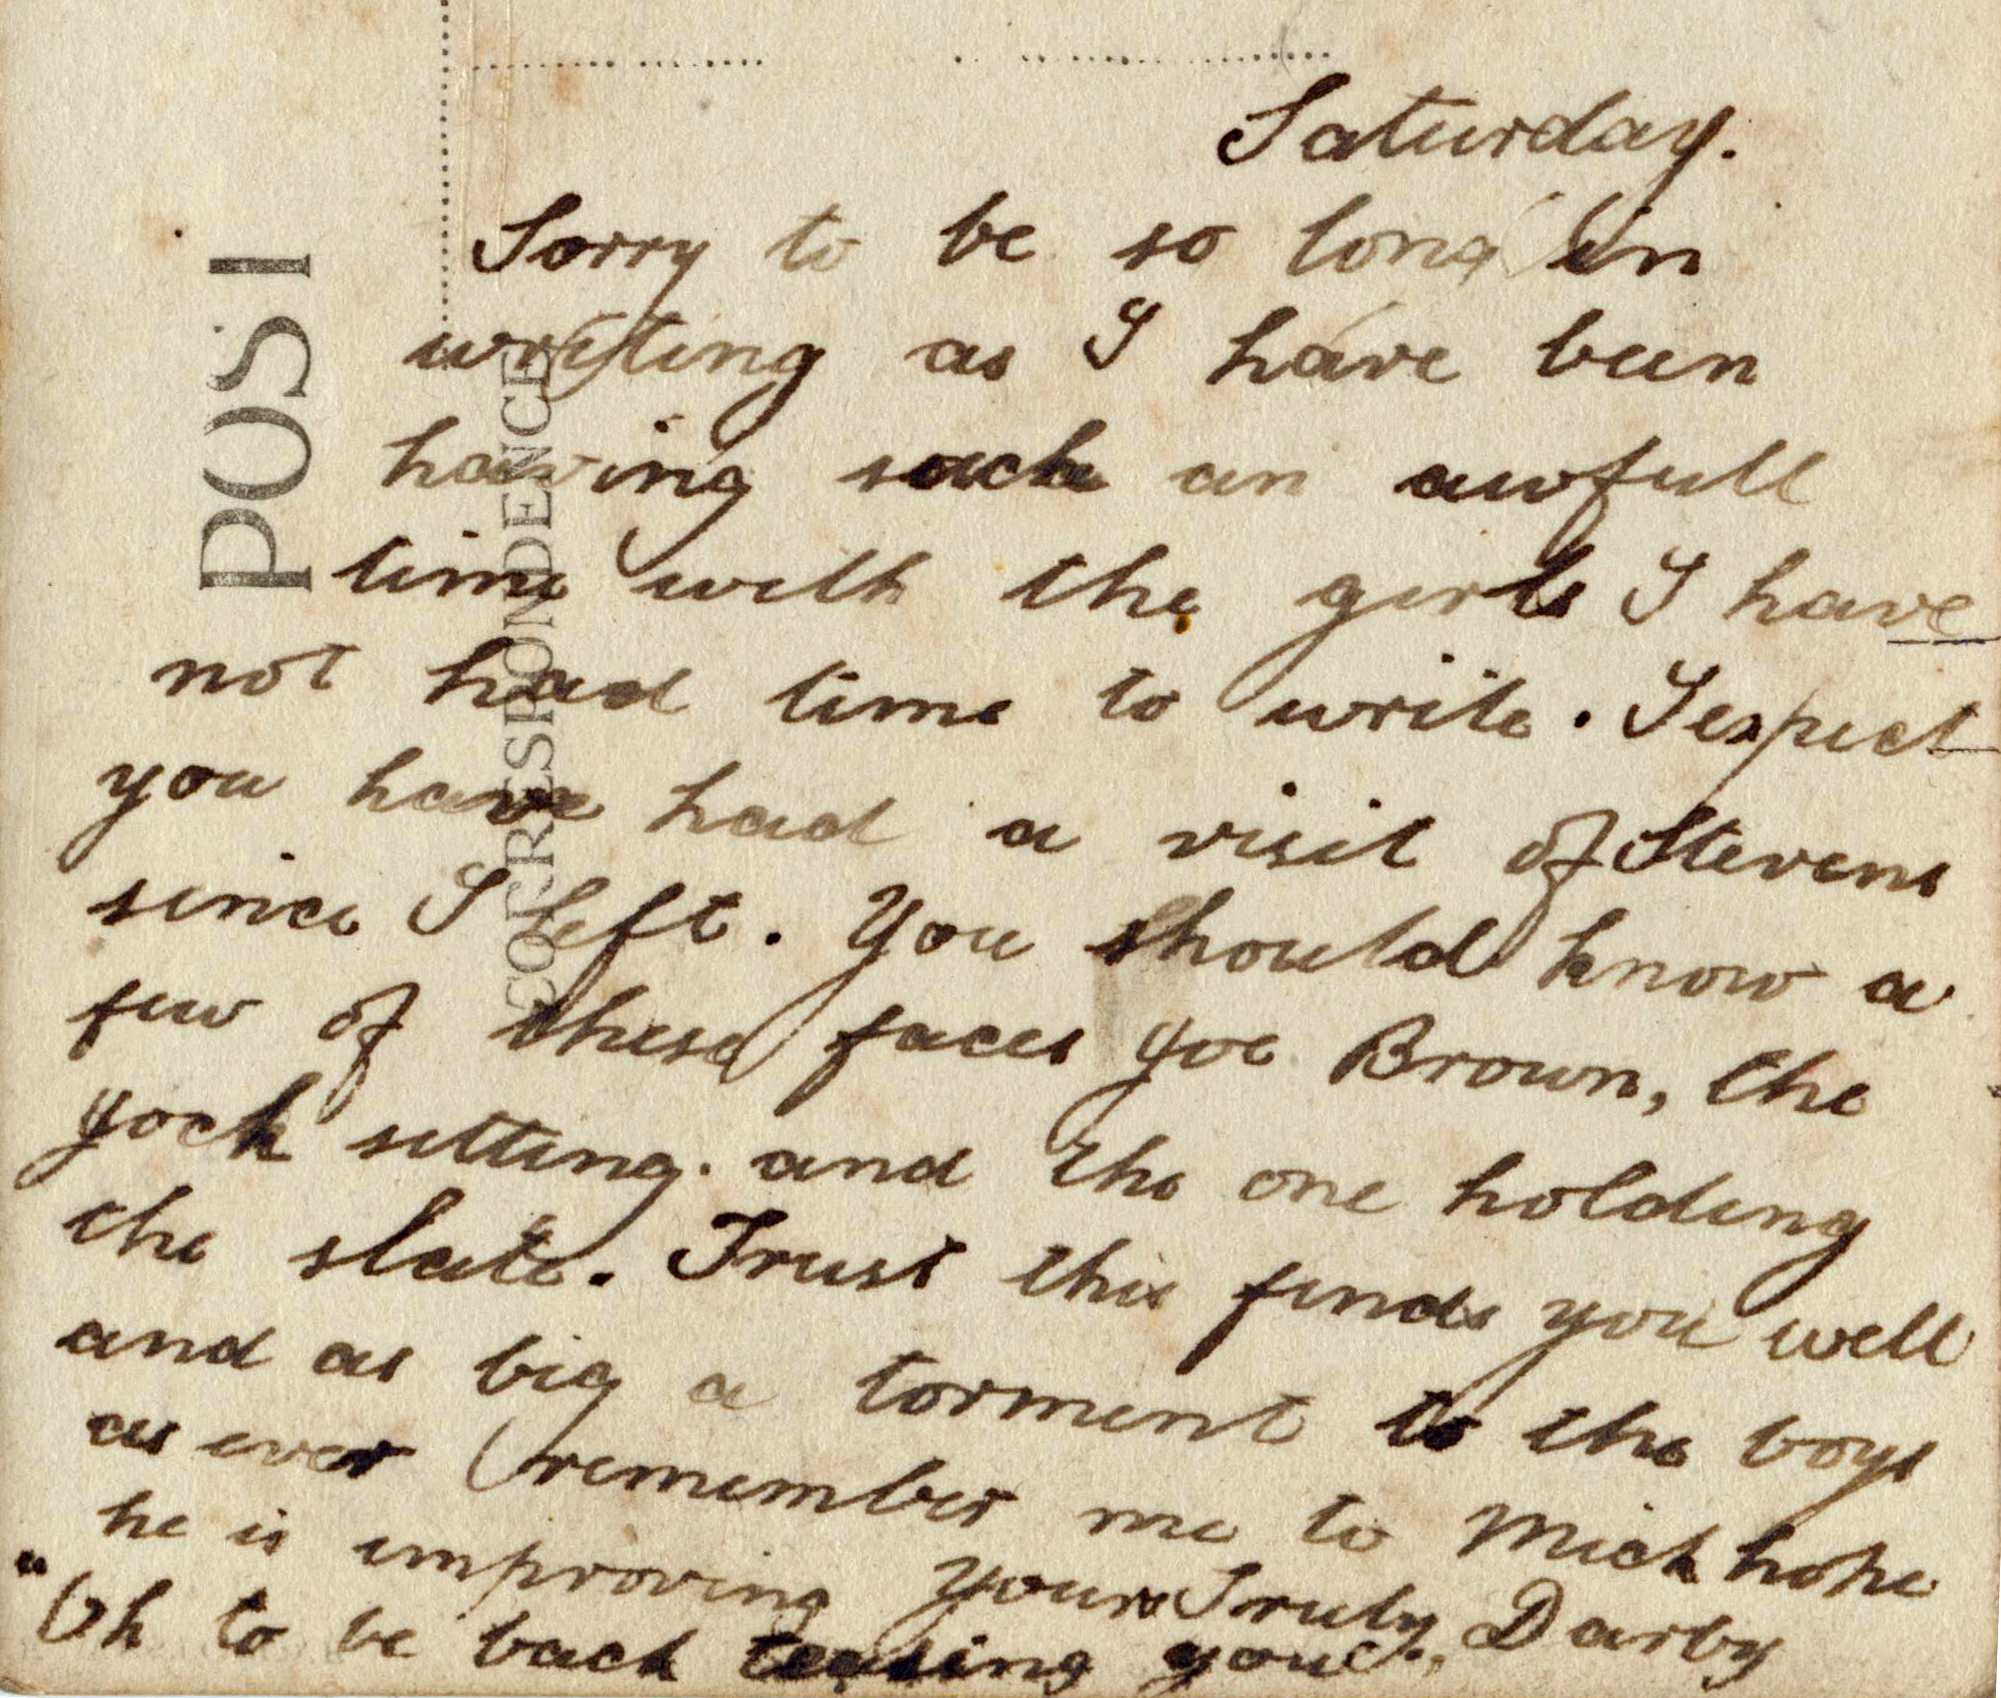 Saturday.
Sorry to be so long in
writing as I have been
having such an awfull
time with the girls I have
not had time to write. I expect
you have had a visit of Stevens
since I left. You should know a
few of these faces Joe Brown, the
Jock sitting. and the one holding
the slate. Trust this finds you well
and as big a torment to the boys
as ever (remember me to Mick hope
he is improving Yours Truly, Darby
"Oh to be back teasing you".
POST
CORRESPONDENCE